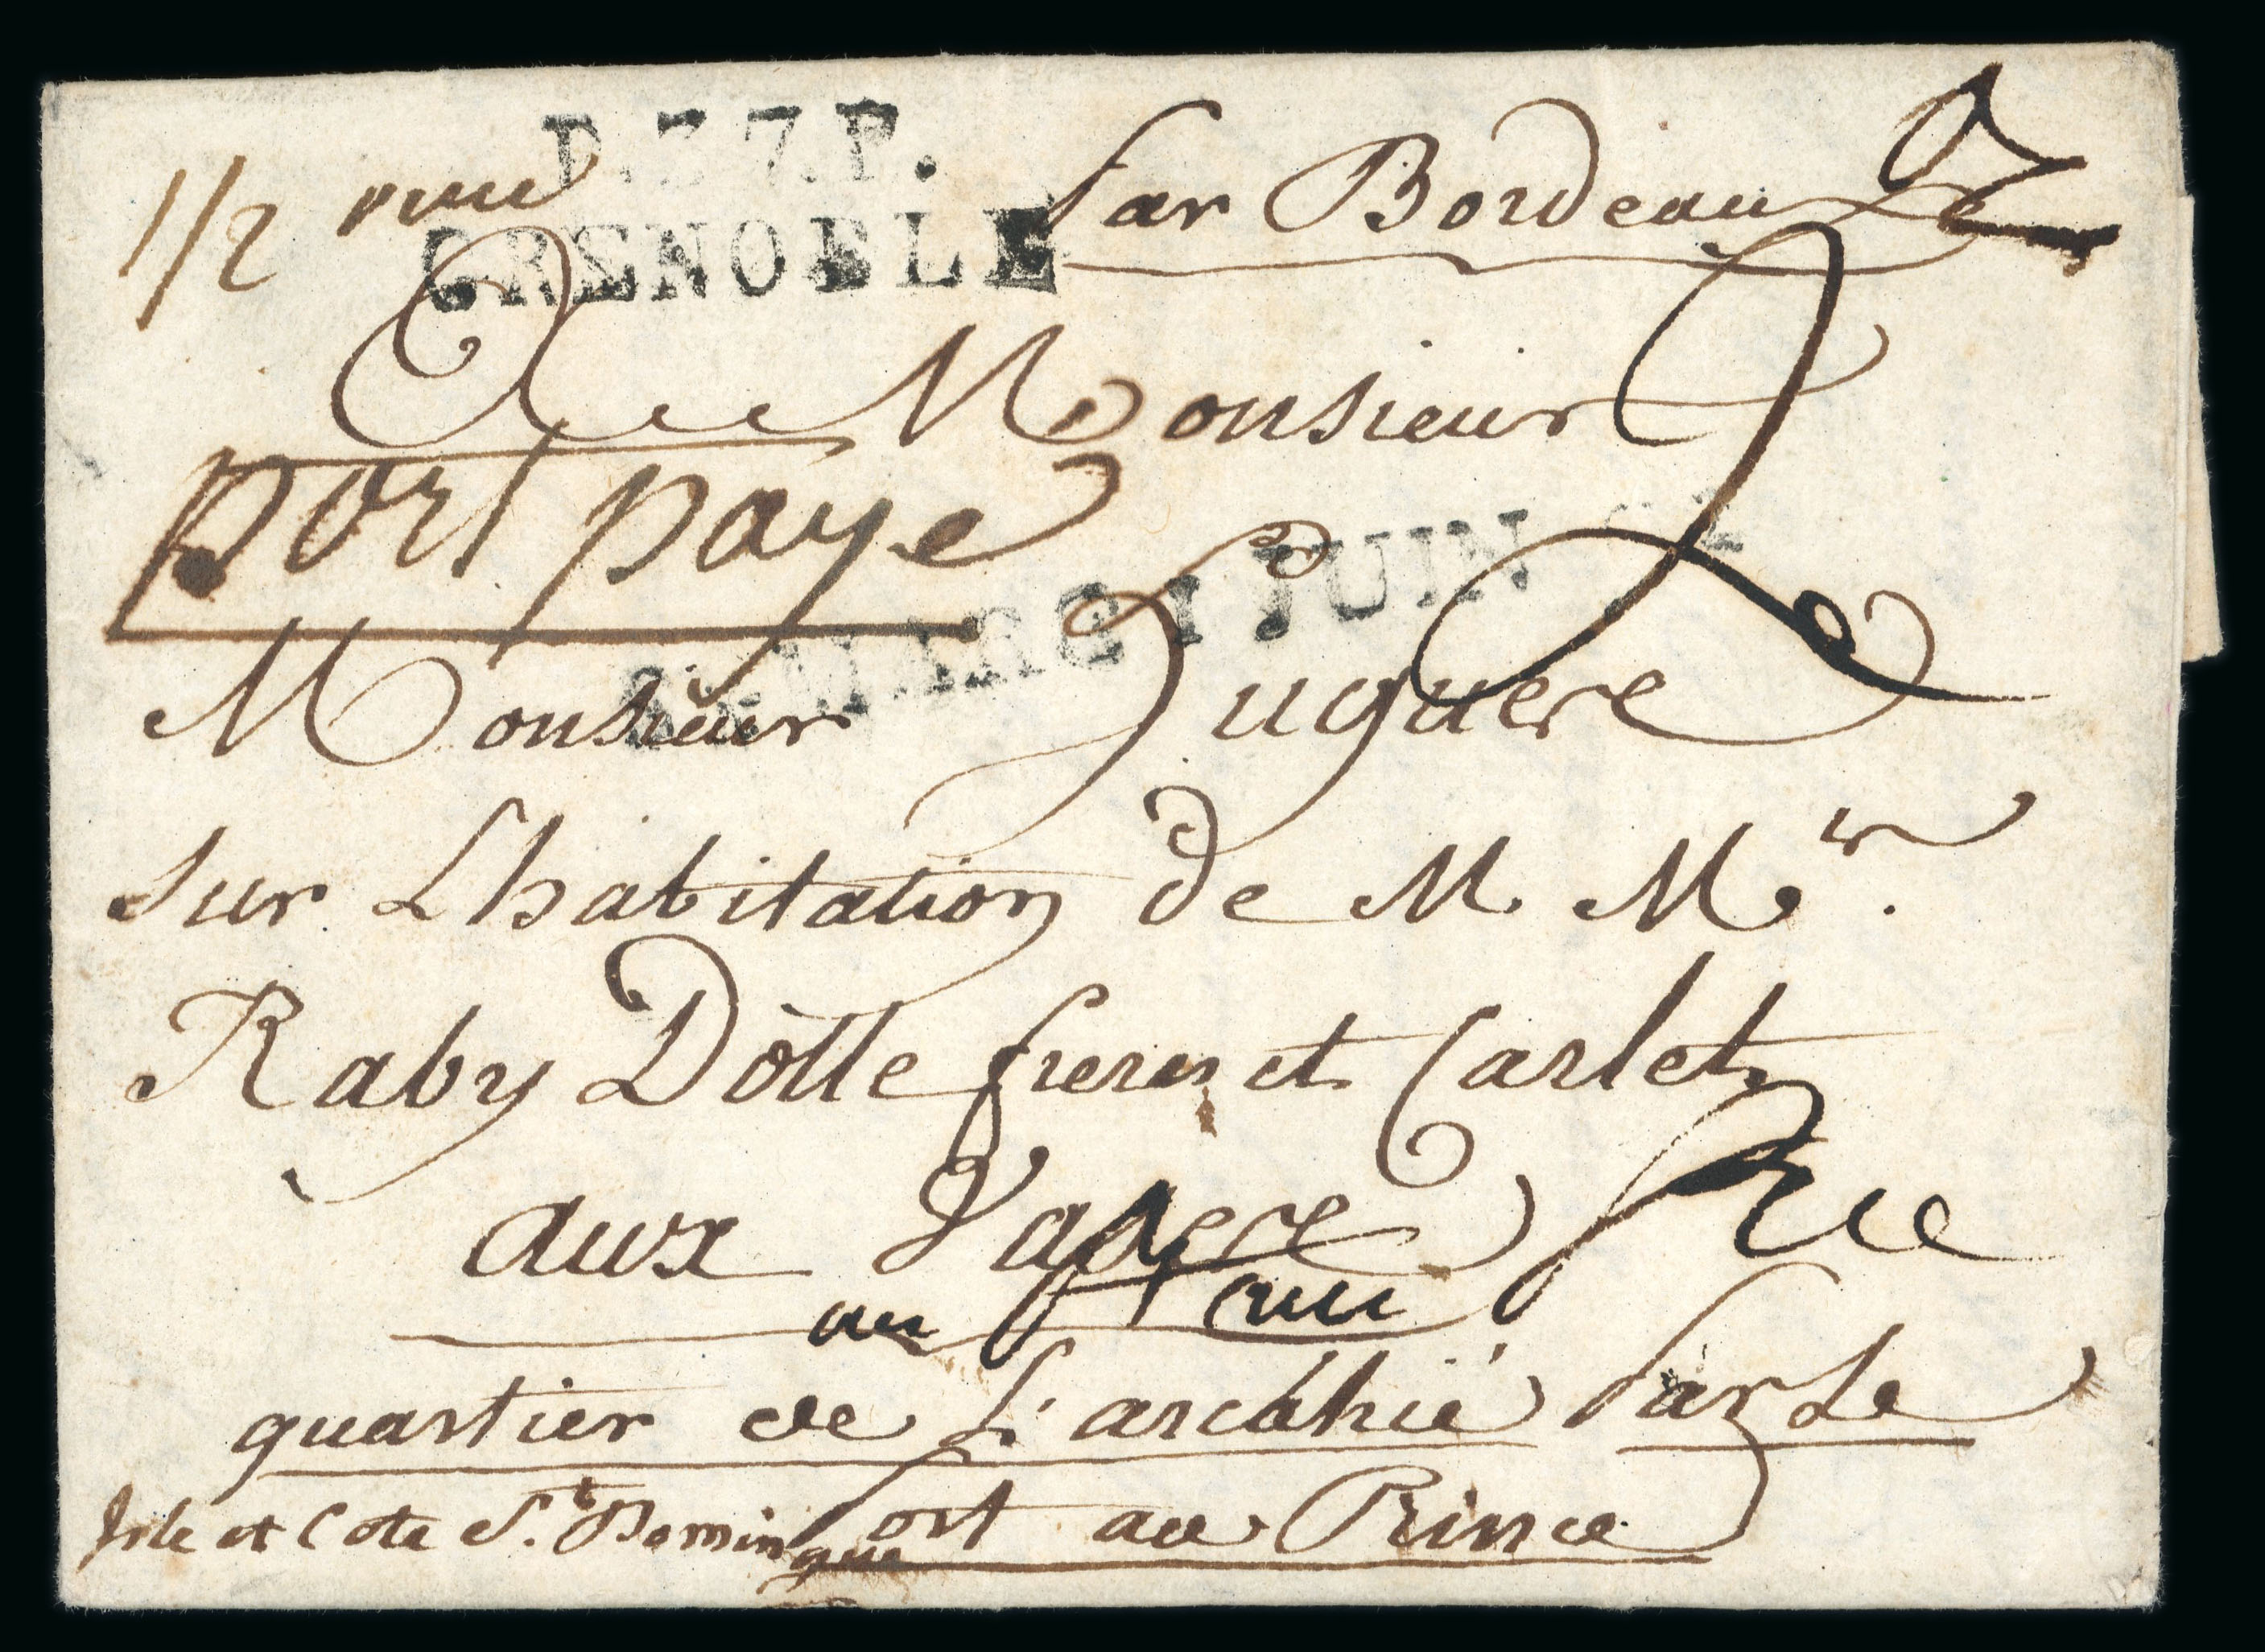 P.37.P.
GRENOBLE
1/2
Par Bordeaux
A Monsieur
port payé
ST MARC 1 JUIN
Monsieur Puguere
sur L'habitation de M. Mrs.
Raby Dôlle freres et Carlet
aux Vasere
au
quartier de L'arcahié Par Le
Port au Prince
Isle et Cote St. Domingue